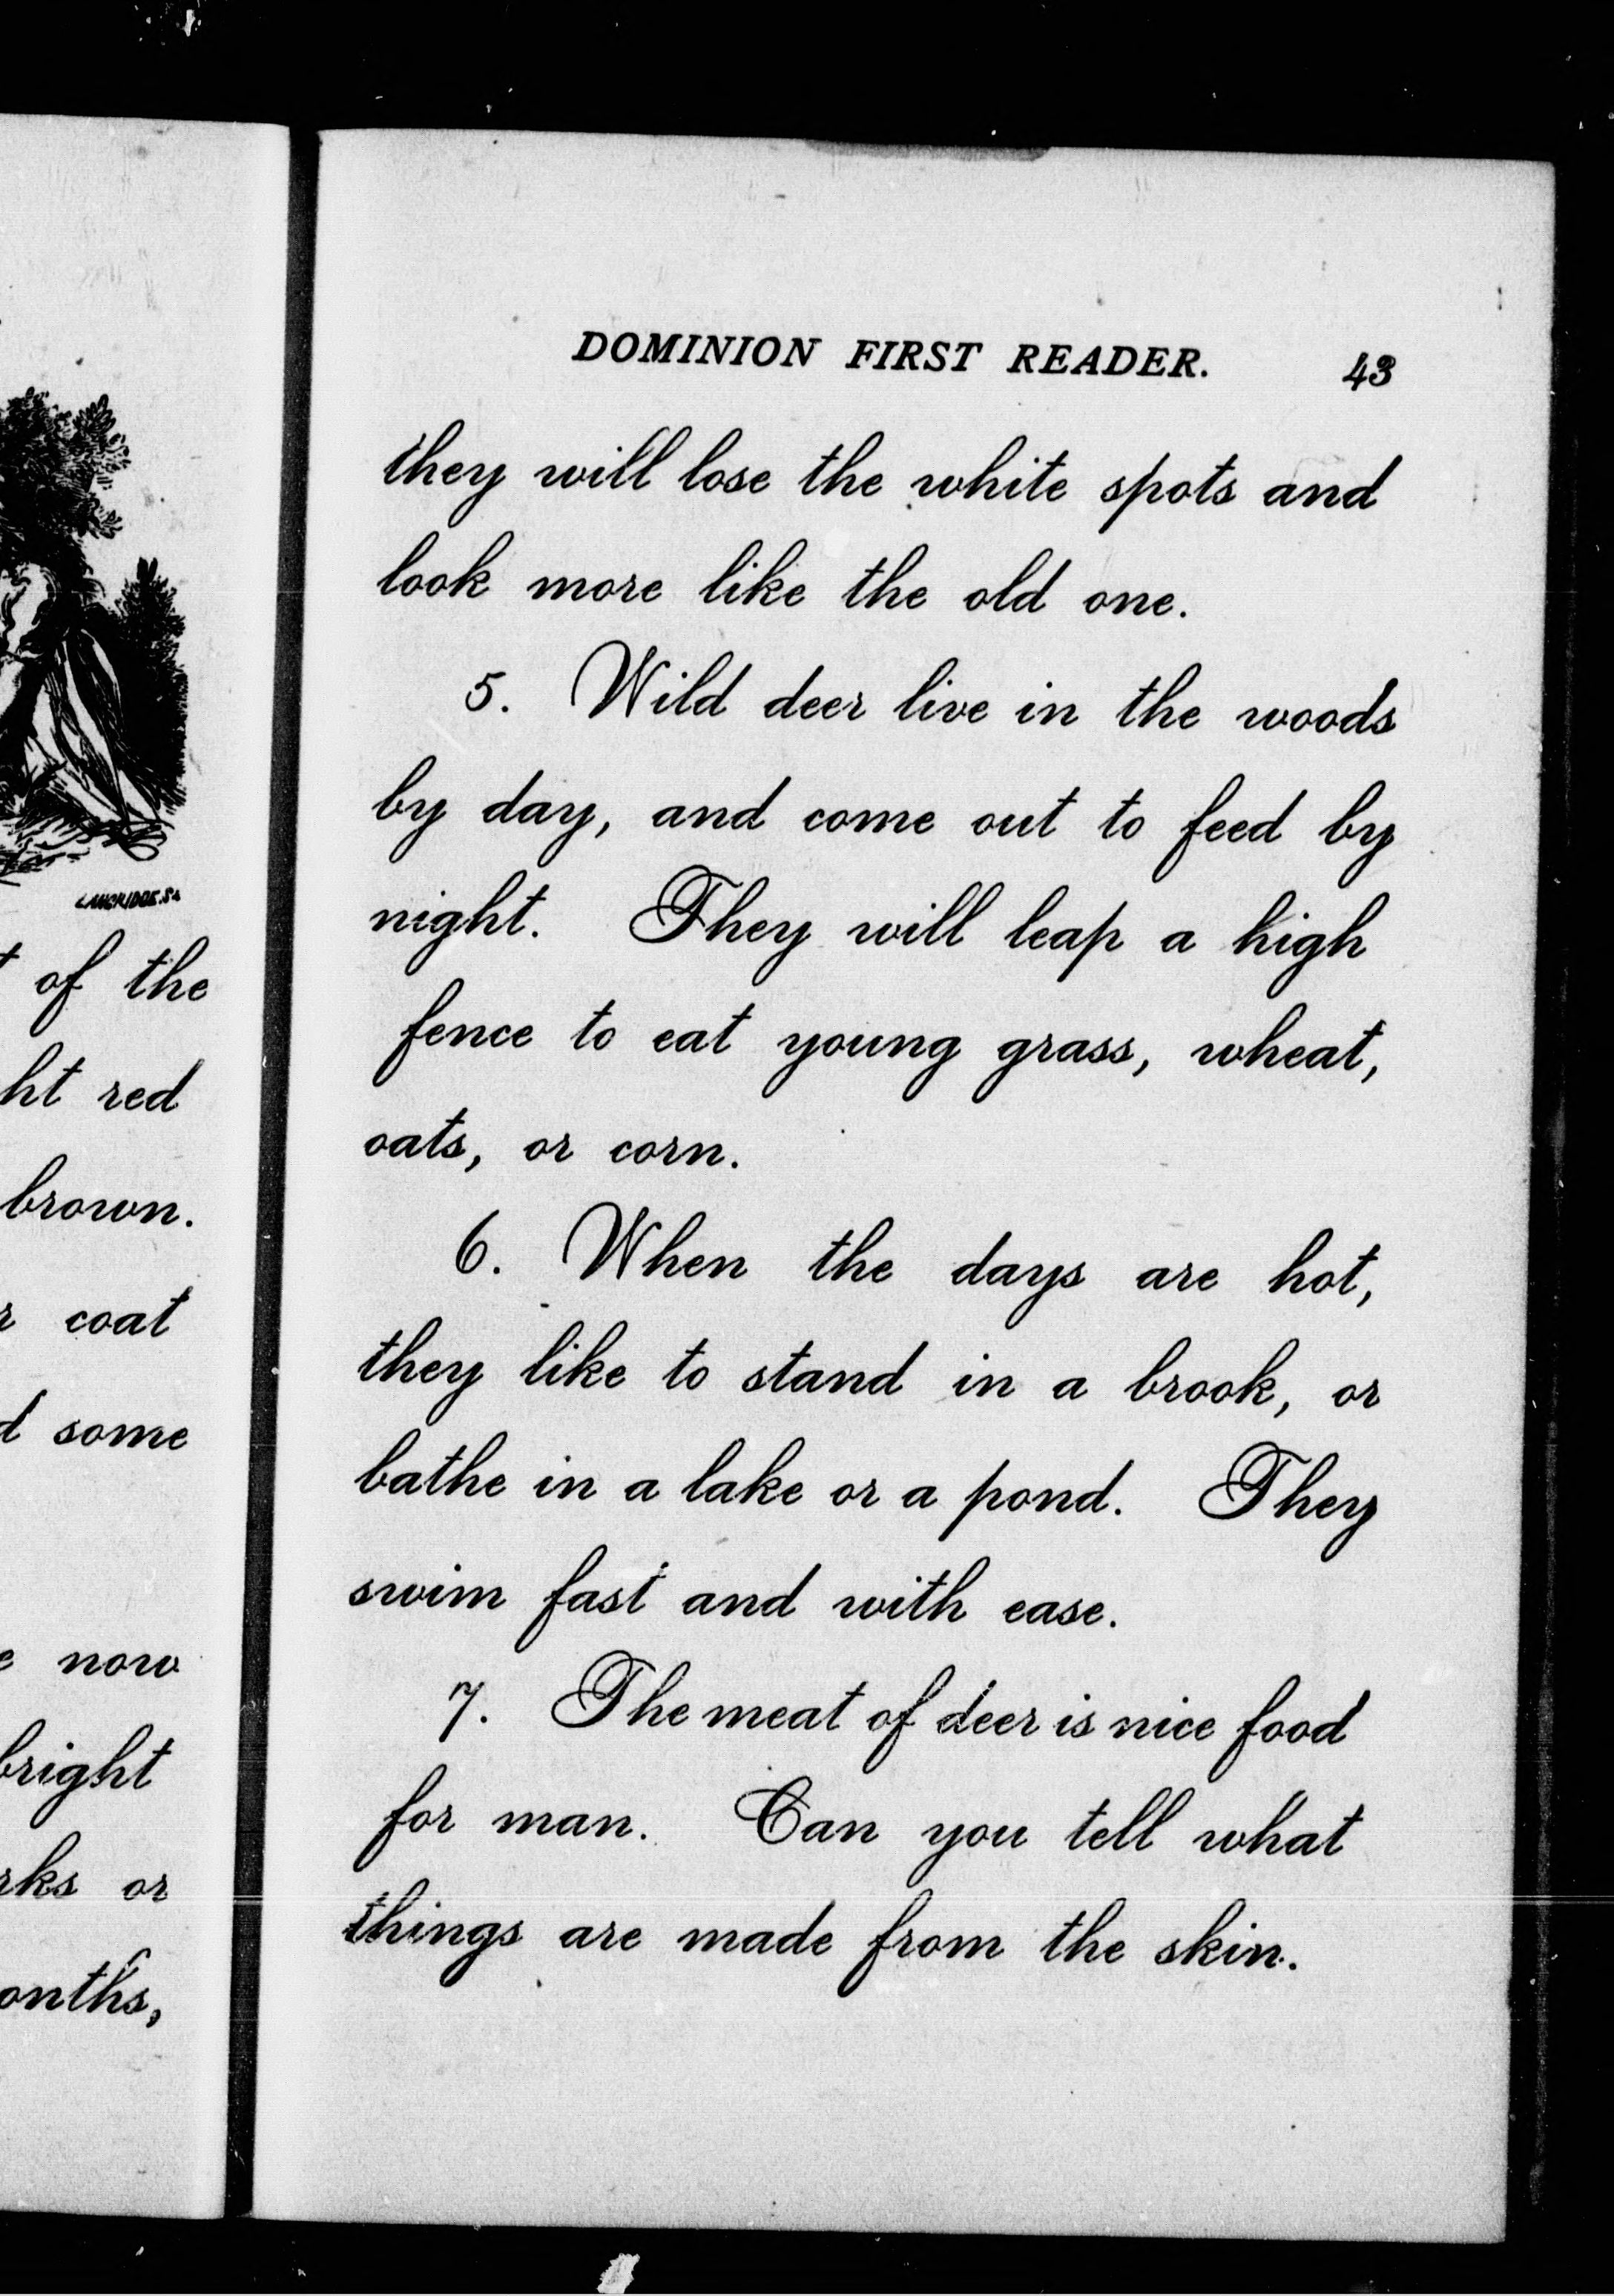 LANGRIDGE. Sc
of the
red
brown.
coat
some
now
bright
or
DOMINION FIRST READER. 43
they will lose the white spots and
look more like the old one.
5. Wild deer live in the woods
by day, and come out to feed by
night. They will leap a high
fence to eat young grass, wheat,
oats, or corn.
6. When the days are hot,
they like to stand in a brook, or
bathe in a lake or a pond. They
swim fast and with ease.
7. The meat of deer is nice food
for man. Can you tell what
things are made from the skin.